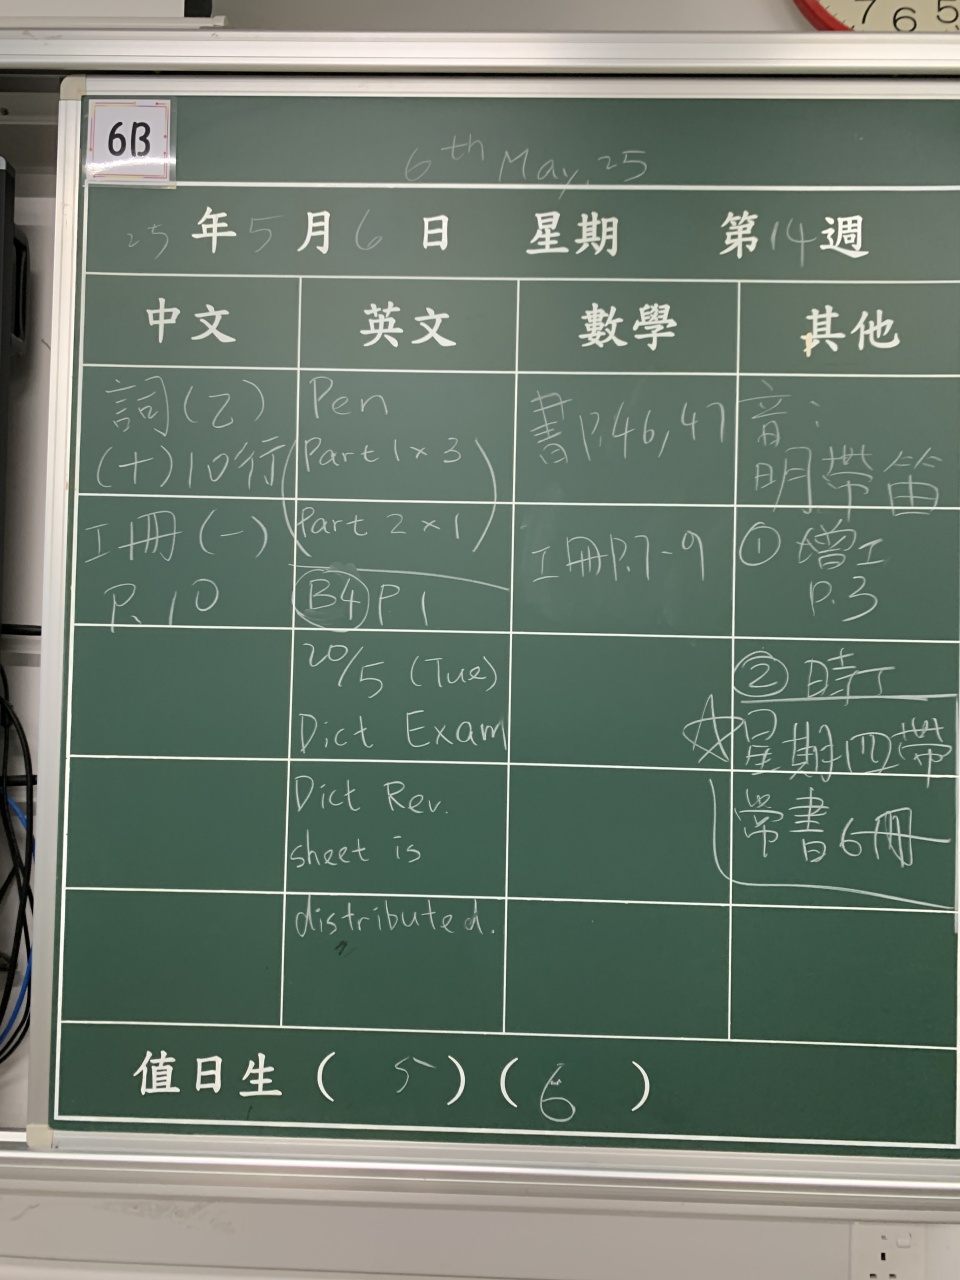 7 6 5
6B
6th May, 25
25年5月6日 星期 第14週
中文 英文 數學 其他
詞(乙)
(十)10行
工冊(一)
P.10
Pen
(Part 1 x 3
Part 2 x 1)
B4 P1
20/5 (Tue)
Dict Exam
Dict Rev.
sheet is
distributed.
書P.46,47
工冊P.7-9
音:
明帶笛
① 增工
P.3
②
☆星期四帶
常書6冊
值日生( 5 )( 6 )